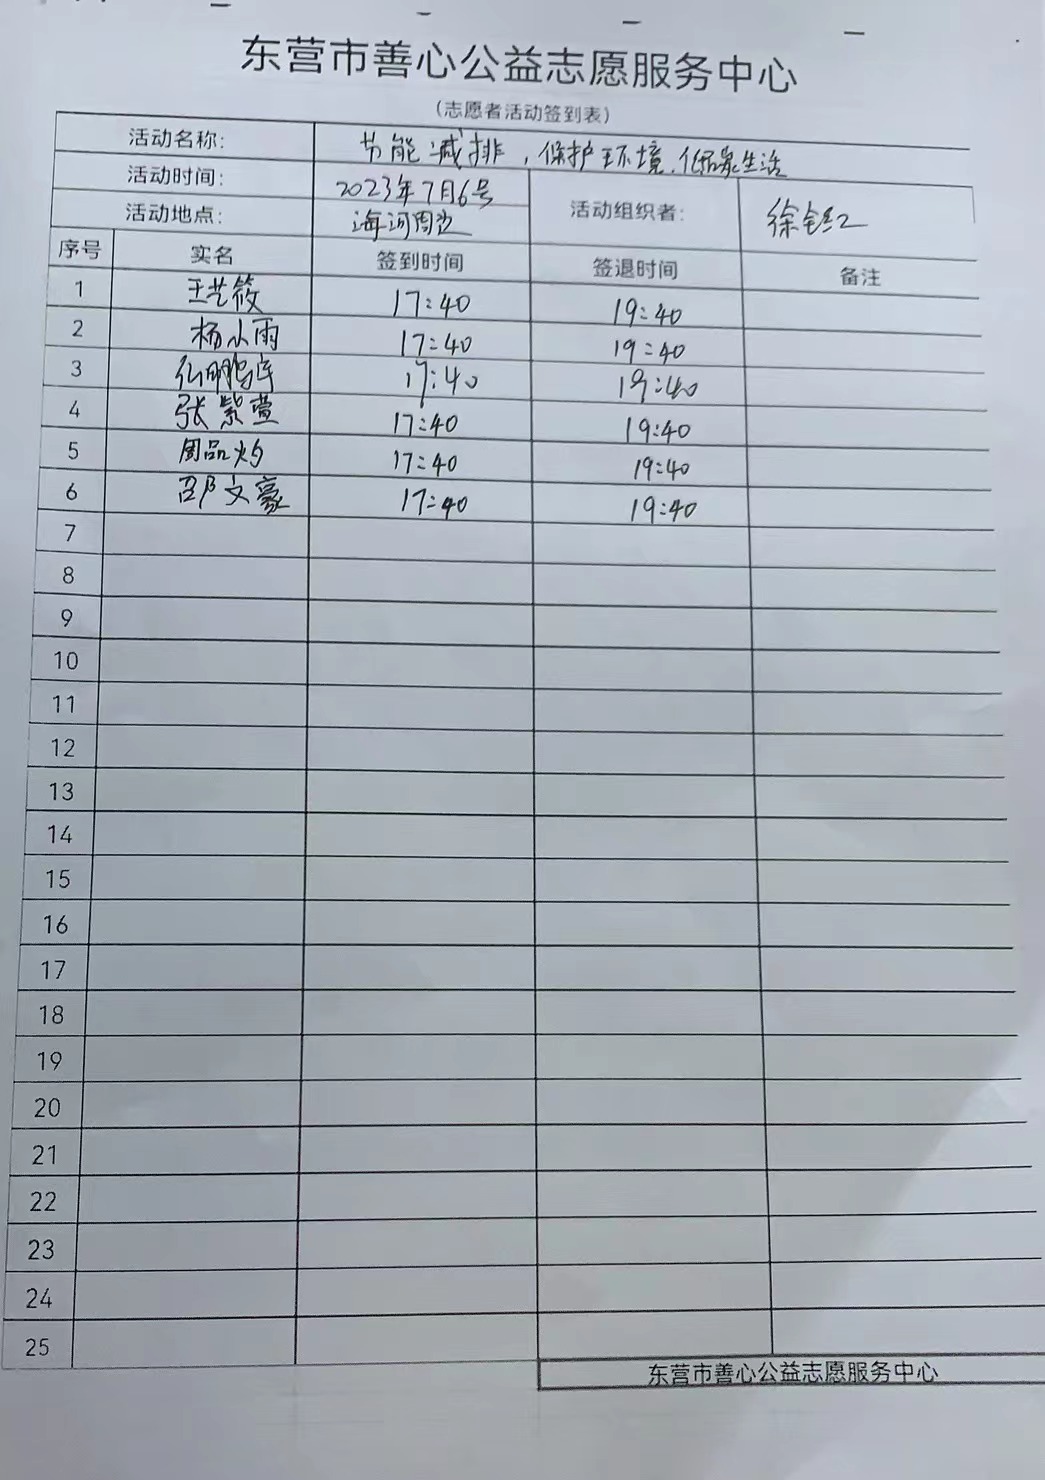 东营市善心公益志愿服务中心
(志愿者活动签到表)
活动名称: 节能减排，保护环境.低碳生活
活动时间: 2023年7月6号 活动组织者: 徐
活动地点: 海河周边
序号 实名 签到时间 签退时间 备注
1 王艺筱 17:40 19:40
2 杨小雨 17:40 19:40
3 17:40 19:40
4 张紫萱 17:40 19:40
5 周品灼 17:40 19:40
6 邵文豪 17:40 19:40
7
8
9
10
11
12
13
14
15
16
17
18
19
20
21
22
23
24
25
东营市善心公益志愿服务中心